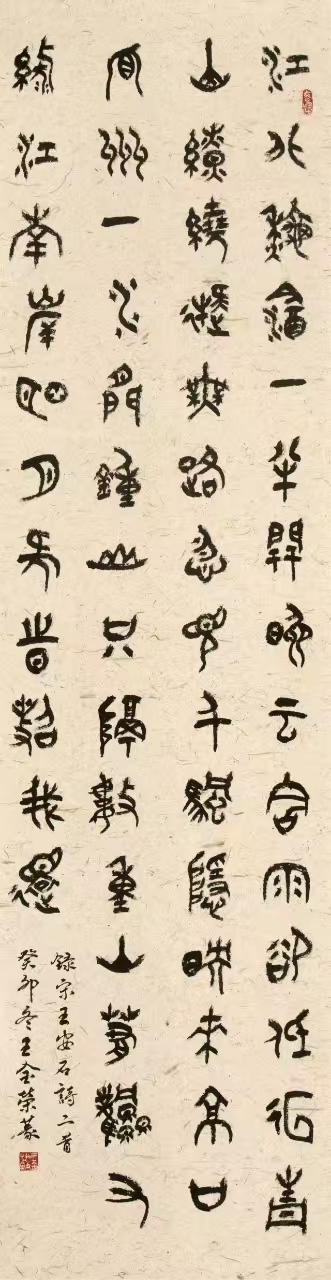 江北秋陰一半開晚云含雨卻低徊青
山繚繞疑無路忽見千帆隱映來京口
瓜州一水間鍾山只隔數重山春風又
綠江南岸明月何時照我還
錄宋王安石詩二首
癸卯冬王全榮篆